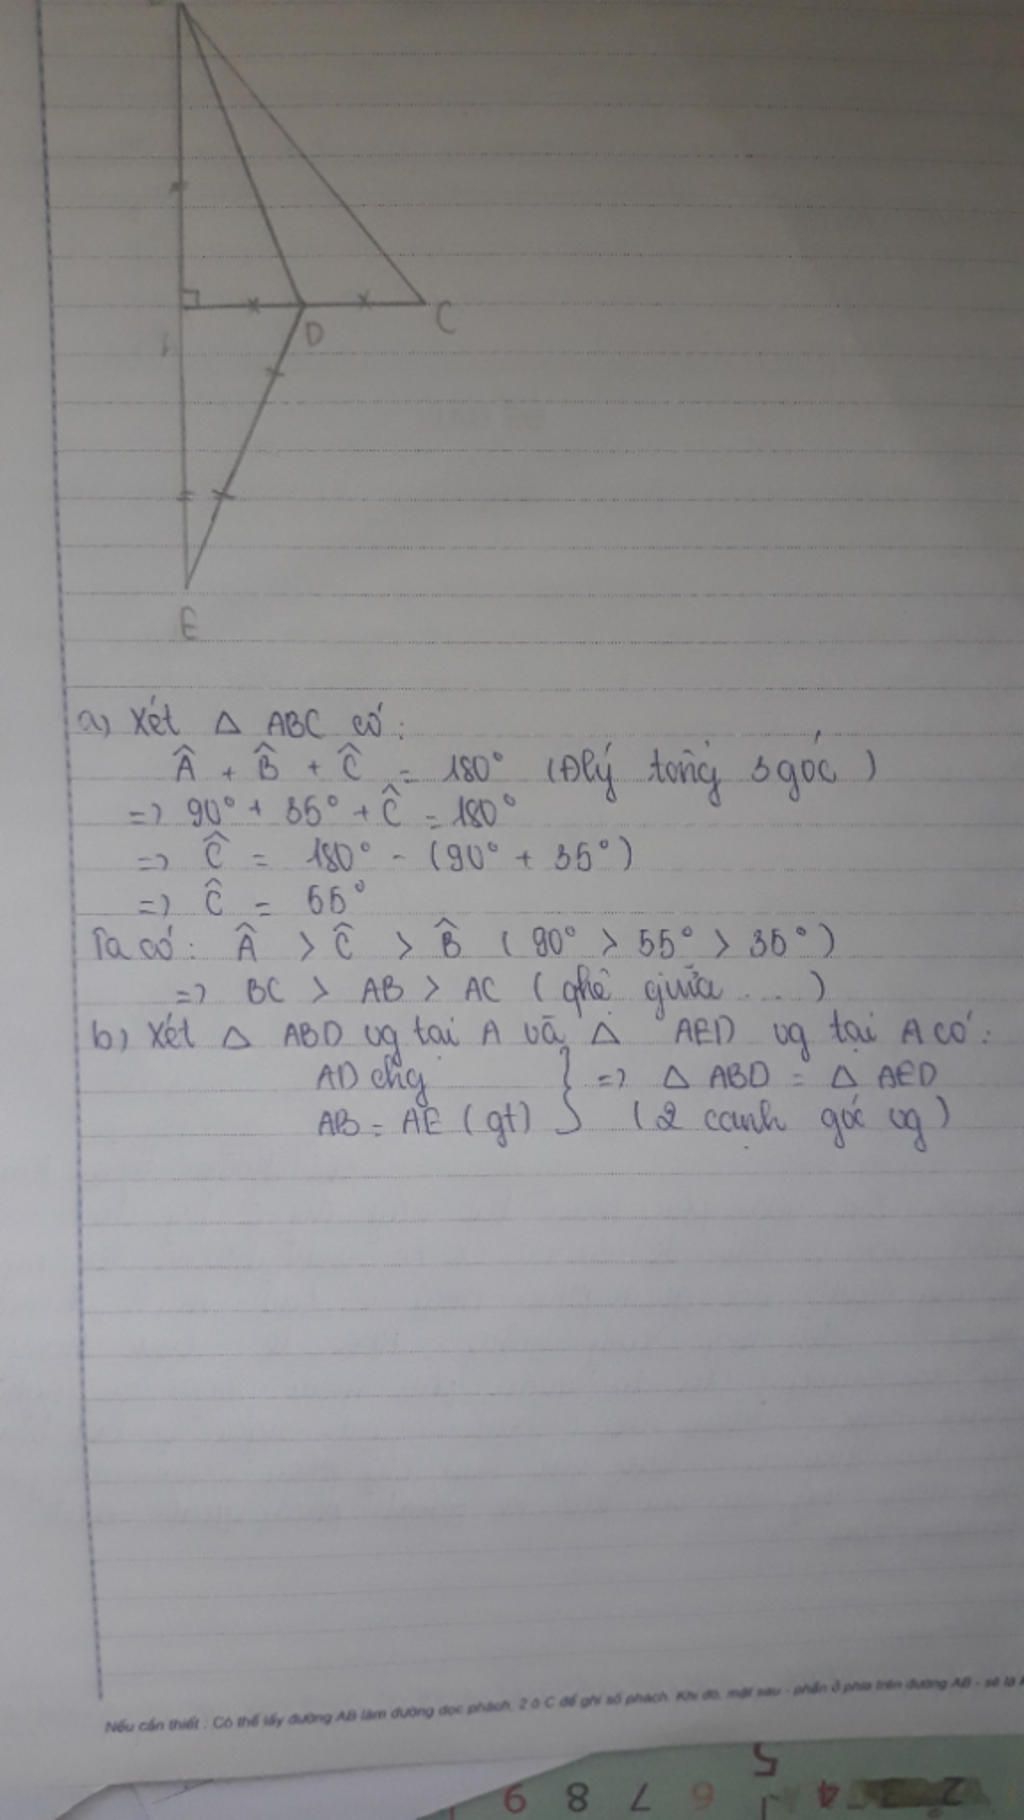 C
D
E
a) Xét △ ABC có:
Â + B̂ + Ĉ = 180° (Đlý tổng 3 góc)
=> 90° + 35° + Ĉ = 180°
=> Ĉ = 180° - (90° + 35°)
=> Ĉ = 55°
Ta có: Â > Ĉ > B̂ (90° > 55° > 35°)
=> BC > AB > AC (qhệ giữa ...)
b) Xét △ ABD vg tại A và △ AED vg tại A có:
AD chg } => △ ABD = △ AED
AB = AE (gt) (2 cạnh góc vg)
Nếu cần thiết : Có thể lấy đường AB làm đường dọc phách, 2 ô C để ghi số phách. Khi đó, mặt sau - phần ở phía trên đường AB - sẽ là
9 8 7 6 5 4 2